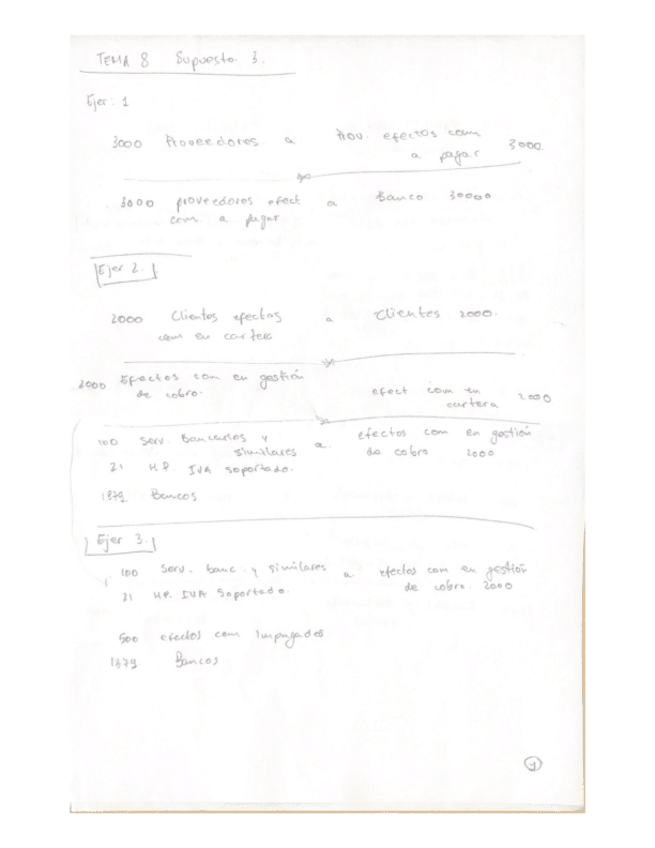 TEMA 8 Supuesto 3.
Ejer: 1
3000 Proveedores a Prov. efectos com
a pagar 3000
3000 proveedores efect a Banco 30000
com a pagar
Ejer 2.
2000 Clientes efectos a Clientes 2000.
com en cartera
2000 Efectos com en gestión efect com en
de cobro. cartera 2000
100 Serv. Bancarios y efectos com en gestión
similares a de cobro 2000
21 H.P. IVA soportado.
1879 Bancos
Ejer 3.
100 Serv. banc. y similares a efectos com en gestión
21 H.P. IVA Soportado. de cobro. 2000
500 efectos com Impagados
1379 Bancos